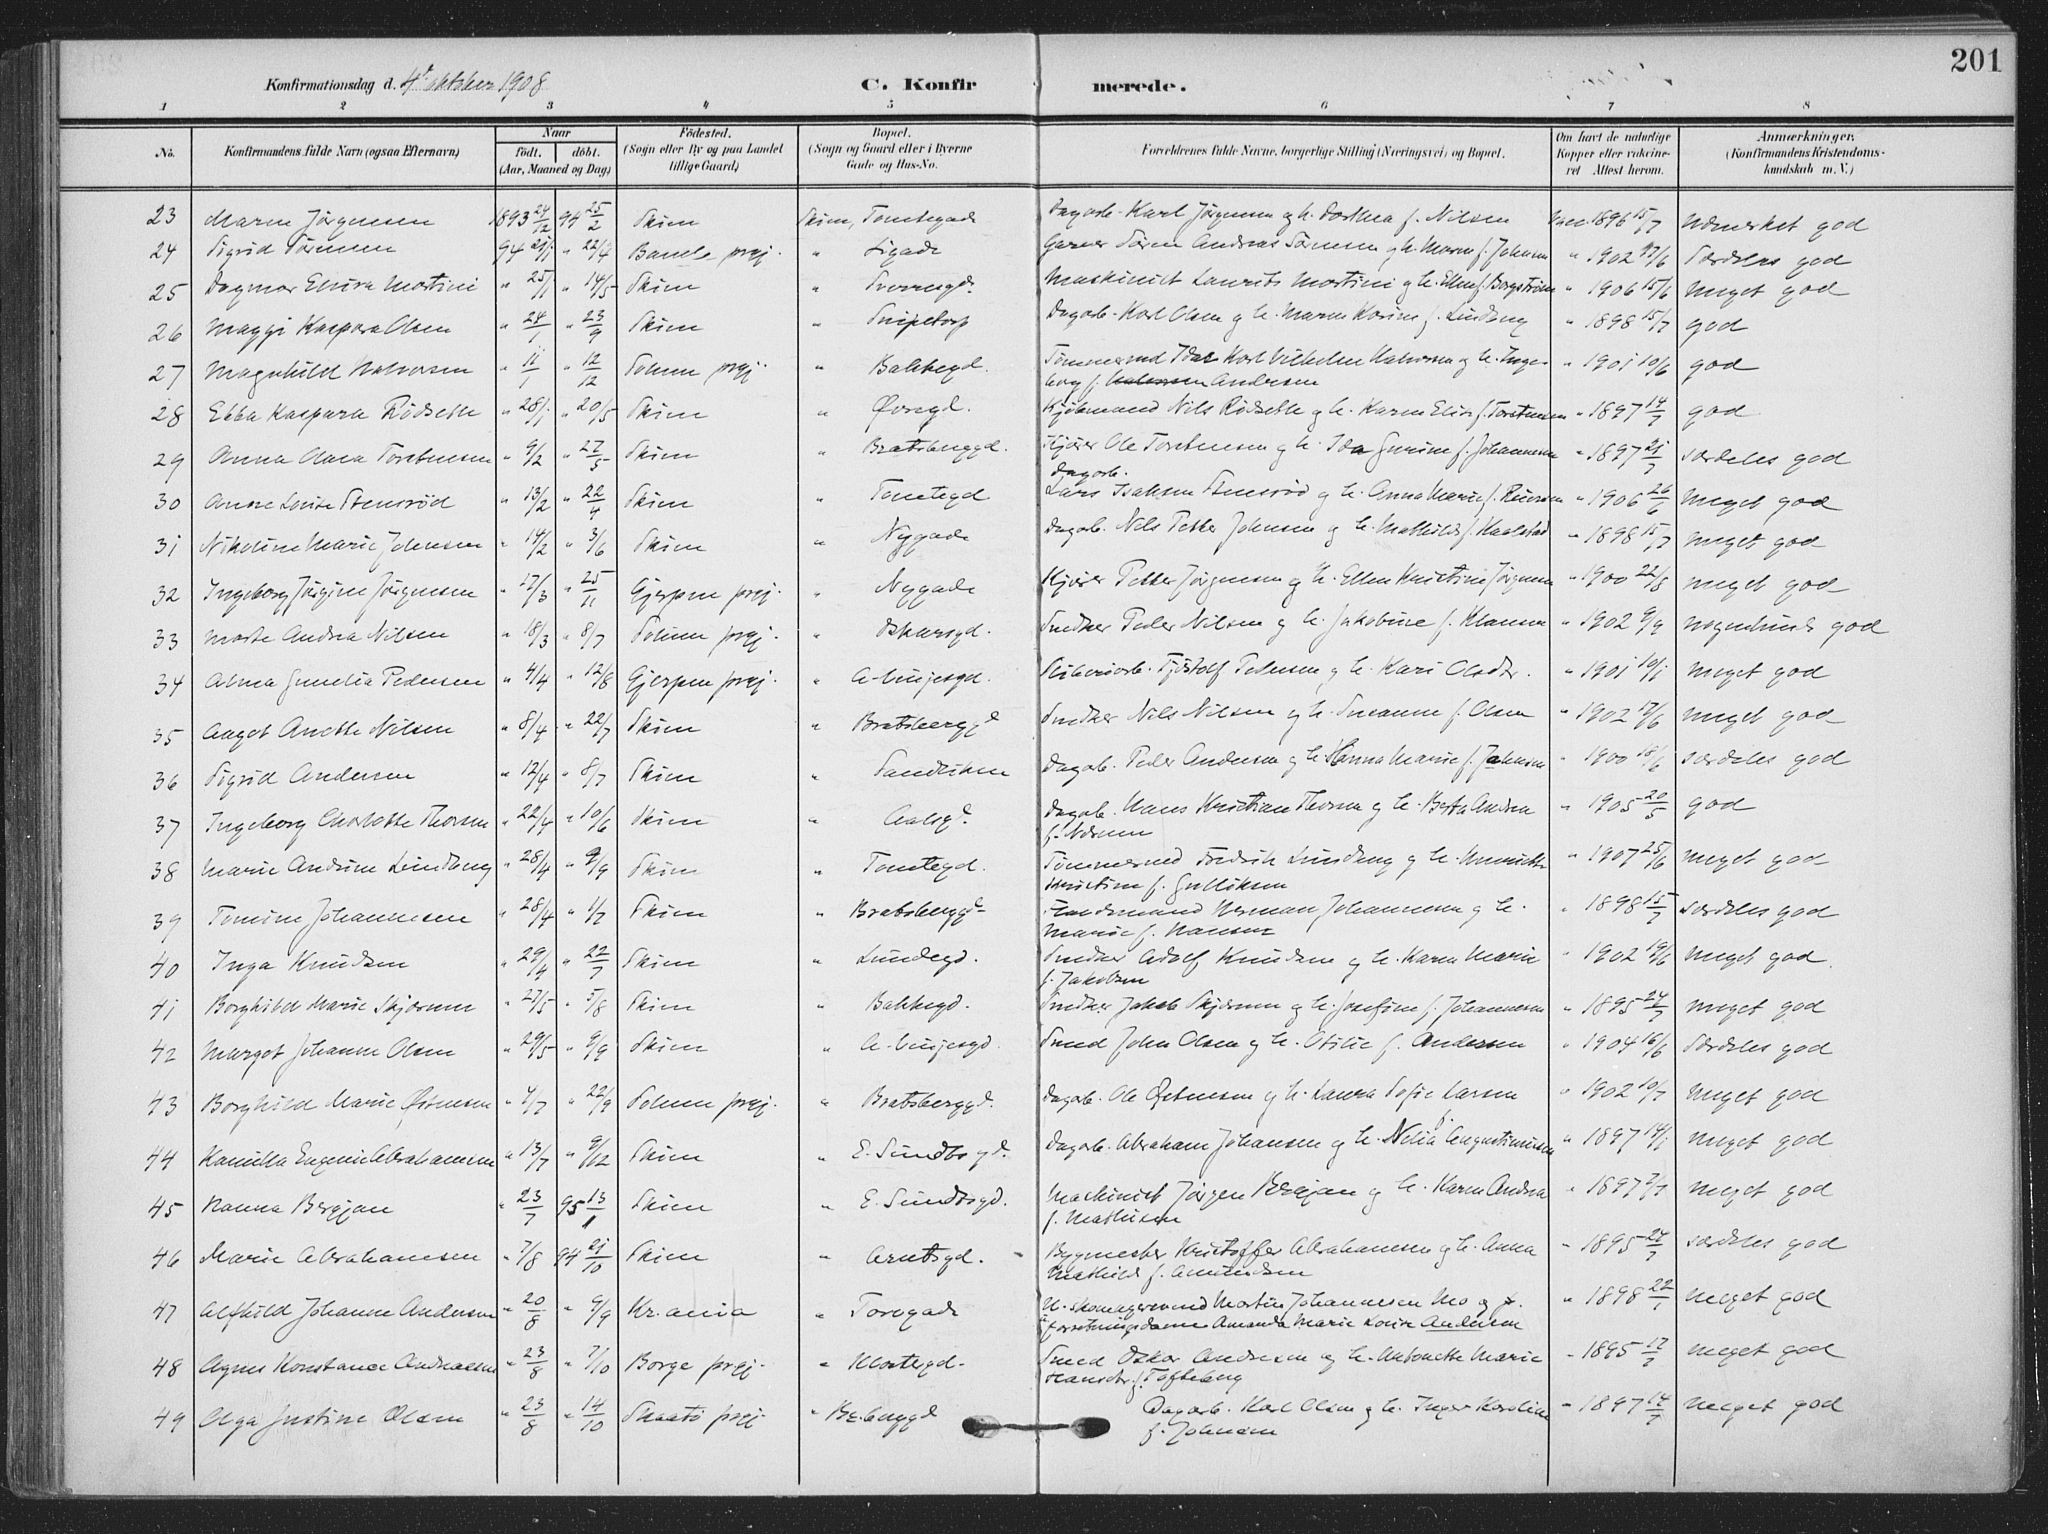 201
Konfirmationsdag d. 4de oktober 1908 C. Konfirmerede.
1 2 3 4 5 6 7 8
No. Konfirmandens fulde Navn (ogsaa Efternavn) Naar født. døbt. (Aar, Maaned og Dag) Födested. (Sogn eller By og paa Landet tillige Gaard) Bopæl. (Sogn og Gaard eller i Byerne Gade og Hus-No. Forældrenes fulde Navne, borgerlige Stilling (Næringsvei) og Bopæl. Om havt de naturlige Kopper eller vakcineret Attest herom. Anmærkninger. (Konfirmandens Kristendomskundskab m. V.)
23 Maren Jørgensen 1893 24/12 94 25/2 Skien Skien, Tomtegade Dagarb. Karl Jørgensen og h. Dorthea f. Nilsen Vacc. 1896 15/7 Udmerket god
24 Sigrid Sørensen 94 21/1 " 22/4 Bamle prgj. " Ligade Garver Søren Andreas Sørensen og h. Maren f. Johnsen " 1902 17/6 Særdeles god
25 Dagmar Elvira Martini " 25/1 " 14/5 Skien " Sverresgd. Maskinist Laurits Martini og h. Ellen f. Borgstrøm " 1906 15/6 Meget god
26 Maggi Kaspara Olsen " 24/1 " 23/9 Skien " Snipetorp Dagarb. Karl Olsen og h. Maren Karine f. Lindberg " 1898 15/7 god
27 Magnhild Halvorsen " 11/1 " 12/12 Solum prgj. " Bakkegd. Tømmermd Karl Vilhelm Halvorsen og h. Ingeborg f. Andersen " 1901 10/6 god
28 Ebba Kaspara Rødseth " 28/1 " 20/5 Skien " Øvregd. Kjøbmand Nils Rødseth og h. Karen Elise f. Torstensen " 1897 14/7 god
29 Anna Clara Torstensen " 9/2 " 27/5 Skien " Bratsberggd. Kjører Ole Torstensen og h. Ida Gurine f. Johannesen " 1897 21/7 særdeles god
30 Anne Louise Stensrød " 13/2 " 22/4 Skien " Tomtegd Dagarb. Lars Isaksen Stensrød og h. Anna Marie f. " 1906 26/6 Meget god
31 Nikoline Marie Johnsen " 14/2 " 3/6 Skien " Nygade Dagarb. Nils Petter Johnsen og h. Mathilde f. Kaalstad " 1898 15/7 Meget god
32 Ingeborg Jørgine Jørgensen " 17/3 " 25/11 Gjerpen prgj. " Nygade Kjører Petter Jørgensen og h. Ellen Kristine Jørgensen " 1900 22/8 meget god
33 Marte Andrea Nilsen " 18/3 " 8/7 Solum prgj. " Oskarsgd. Snedker Peder Nilsen og h. Jakobine f. Klausen " 1902 9/9 nogenlunde god
34 Alma Gunelia Pedersen " 4/4 " 12/8 Gjerpen prgj. " A-Vinjesgd. Sliberiarb. Pedersen og h. Kari Olsdtr. " 1901 10/1 meget god
35 Aagot Anette Nilsen " 8/4 " 22/7 Skien " Bratsberggd Snedker Nils Nilsen og h. Susanne f. Olsen " 1902 17/6 meget god
36 Sigrid Andersen " 12/4 " 8/7 Skien " Sandviken Dagarb. Peder Andersen og h. Hanna Marie f. Johnsen " 1900 18/6 særdeles god
37 Ingeborg Charlotte Thorsen " 22/4 " 10/6 Skien " Aalsgd. Dagarb. Hans Kristian Thorsen og h. Berta Andrea f. " 1905 20/5 god
38 Marie Andrine Lundberg " 28/4 " 9/9 Skien " Tomtegd. Tømmermd Fredrik Lundberg og h. Henriette Kristine f. Gulliksen " 1907 25/6 meget god
39 Tomine Johannesen " 28/4 " 1/7 Skien " Bratsberggd. Herman Johannesen og h. Marie f. Hansen " 1898 15/7 særdeles god
40 Inga Knudsen " 29/4 " 22/7 Skien " Lundegd. Snedker Adolf Knudsen og h. Karen Marie f. Jakobsen " 1902 19/6 meget god.
41 Borghild Marie Skjærum " 27/5 " 5/8 Skien " Bakkegd. Snedker Jakob Skjærum og h. Josefine f. Johannesen " 1895 24/7 meget god
42 Margot Johanne Olsen " 29/5 " 9/9 Skien " A-Vinjesgd. Smed John Olsen og h. Otilie f. Andersen " 1904 16/6 Særdeles god
43 Borghild Marie Østensen " 4/7 " 22/9 Solum prgj. " Bratsberggd. Dagarb. Ole Østensen og h. Laura Sofie f. Larsen " 1902 10/7 meget god
44 Kamilla Eugenie Abrahamsen " 13/7 " 9/12 Skien " E. Sundts gd. Dagarb. Abraham Johansen og h. Nelia Augustinusen " 1897 14/1 meget god
45 Hanna Bergjan " 23/7 95 13/1 Skien " E. Sundtsgd. Maskinist Jørgen Bergjan og h. Karen Andrea f. Mathisen " 1897 2/7 meget god
46 Marie Abrahamsen " 7/8 94 21/10 Skien " Arntsgd. Bygmester Kristoffer Abrahamsen og h. Anna Mathilde f. Amundsen " 1895 24/7 særdeles god
47 Alfhild Johanne Andersen " 20/8 " 9/9 Kr.ania " Torvgade U. skomagersvend Morten Johannesen Mo og p. forretningsdame Amanda Marie Lovise Andersen " 1898 22/1 meget god
48 Agnes Konstance Andreassen " 23/8 " 7/10 Borge prgj. " Klostergd. Smed Oskar Andresen og h. Antonette Marie Hansdtr. f. Tofteberg " 1895 17/7 meget god
49 Olga Justine Olsen " 23/8 " 14/10 Skaatø prgj. " Dagarb. Karl Olsen og h. Inger Karoline f. Johnsen " 1897 14/7 meget god